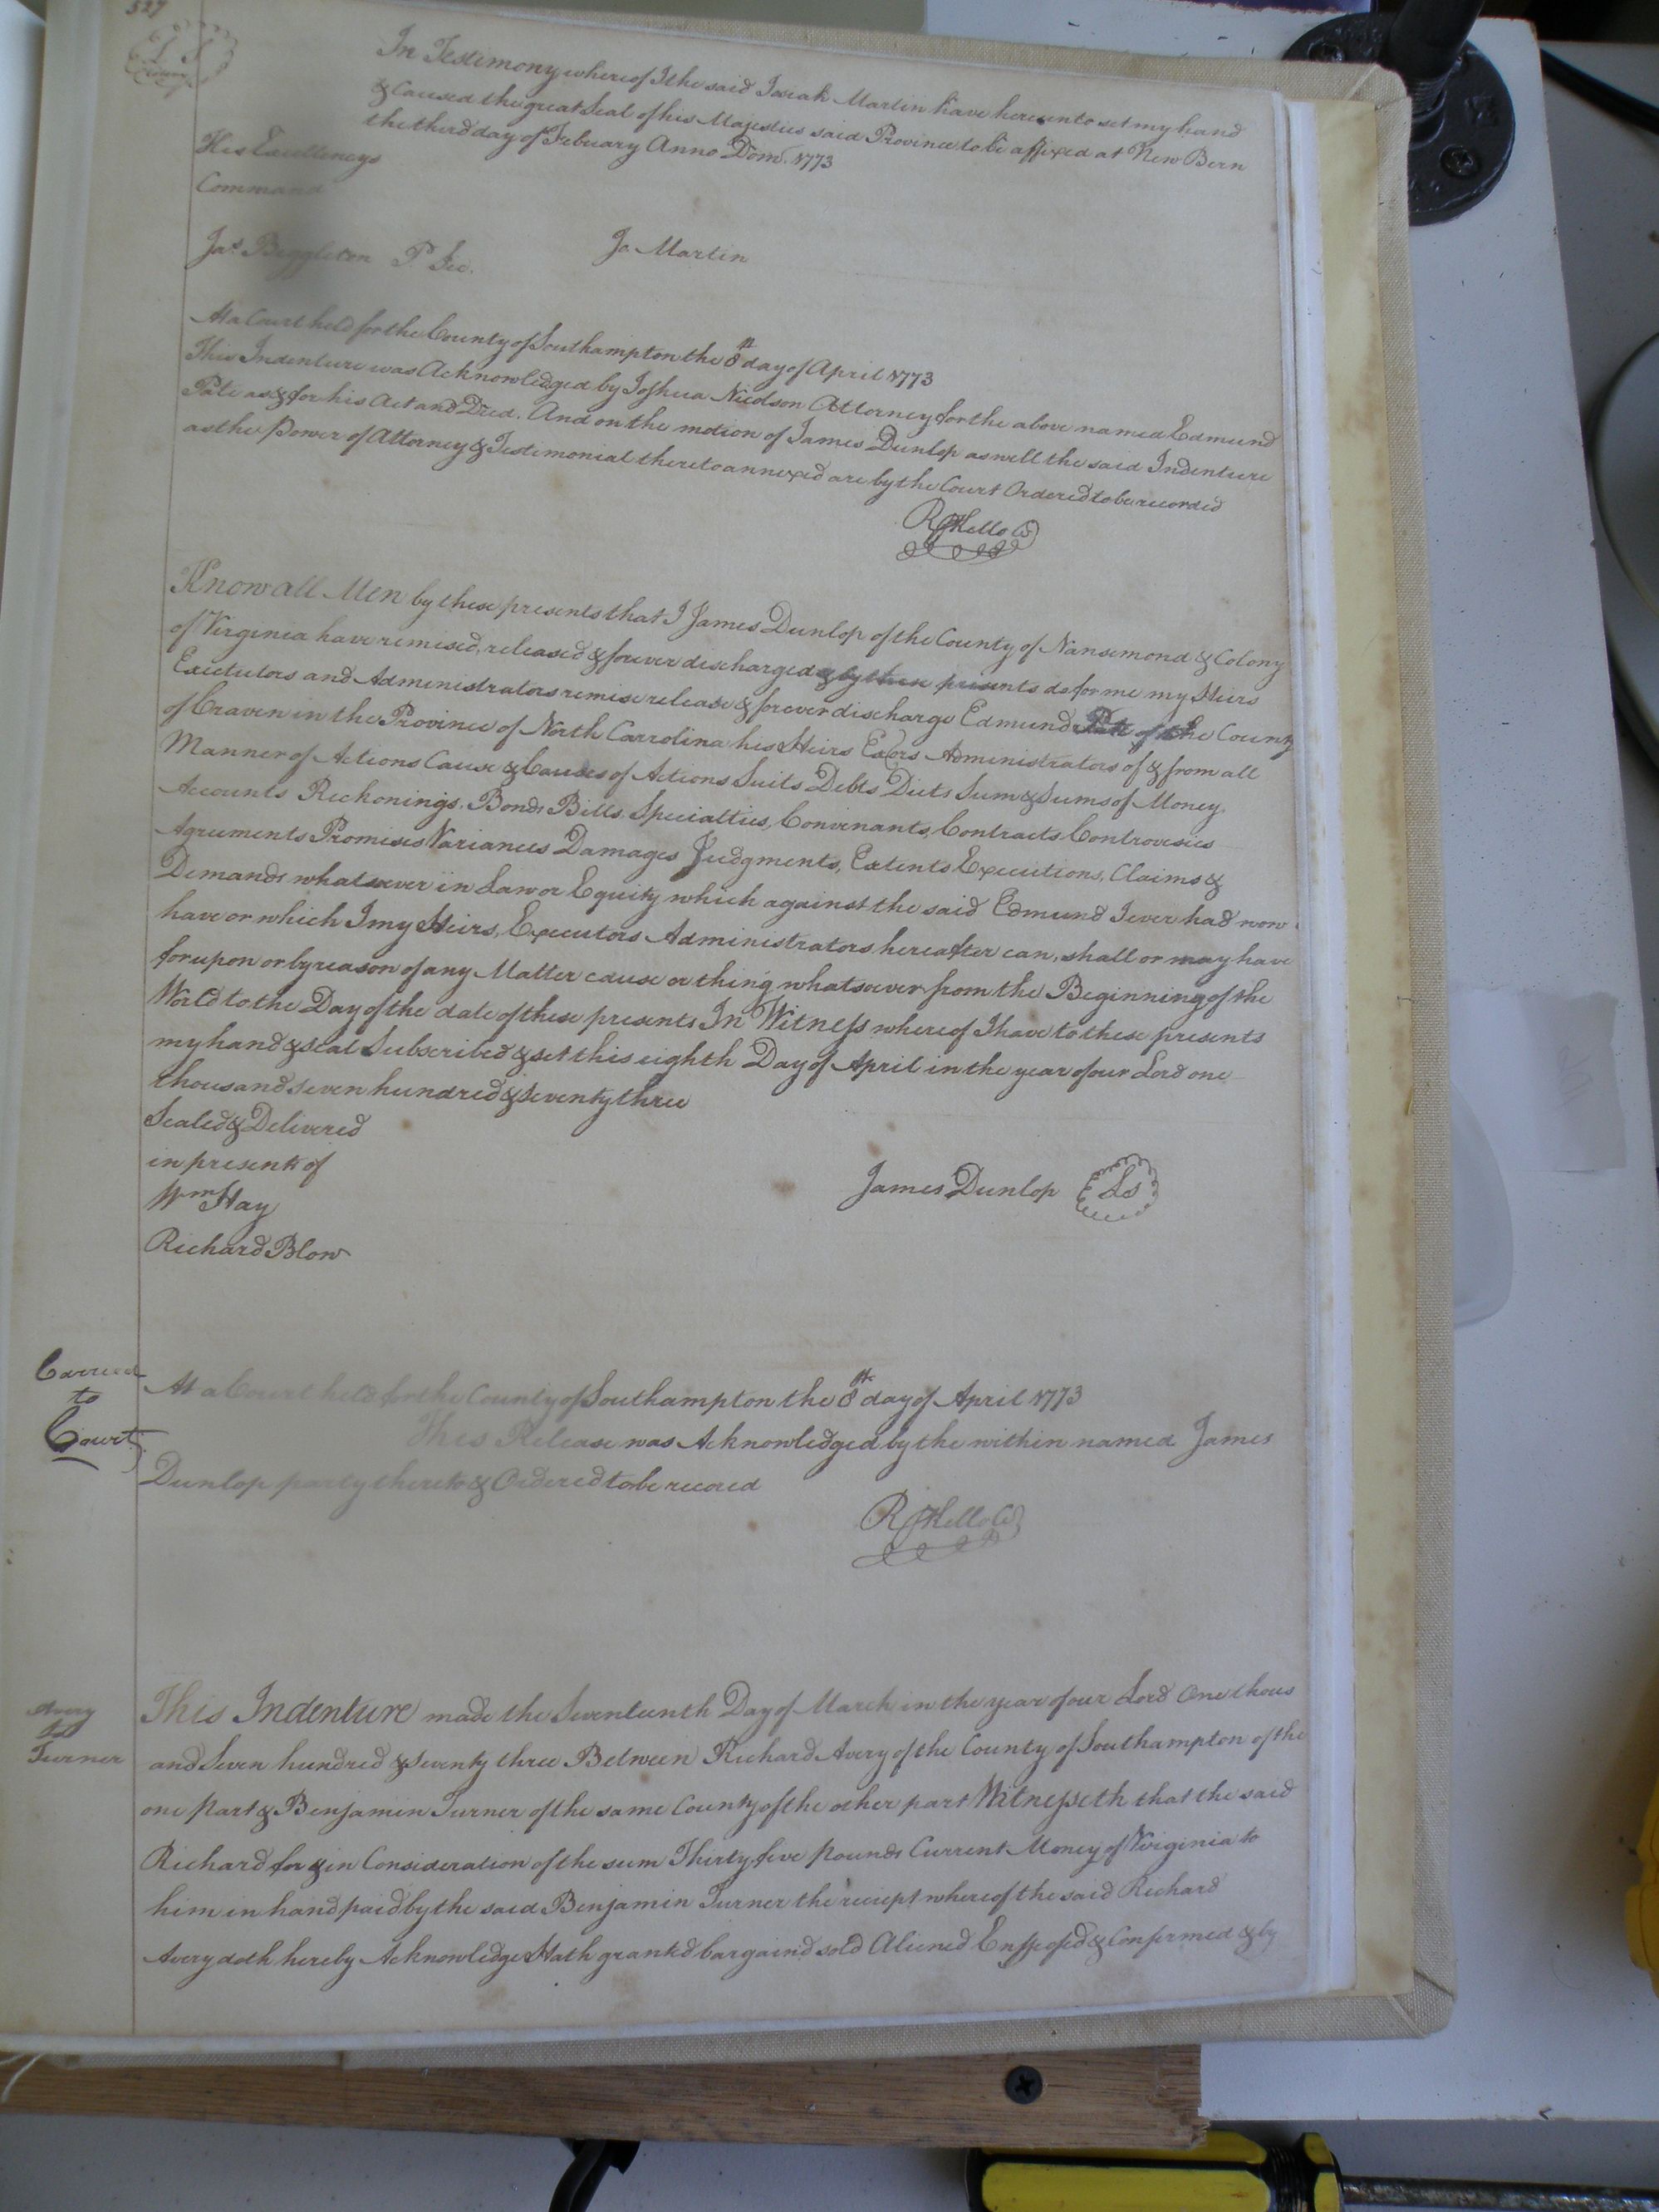 527
L S
In Testimony whereof I the said Josiah Martin have hereunto set my hand
& Caused the great Seal of his Majesties said Province to be affixed at New Bern
the third day of Febuary Anno Dom. 1773
His Excellencys
Command
Jas Biggleton P Sec.
Jo Martin
At a Court held for the County of Southampton the 8th day of April 1773
This Indenture was Acknowledged by Joshua Nicolson Attorney for the above named Edmund
Pate as & for his Act and Deed. And on the motion of James Dunlop as well the said Indenture
as the Power of Attorney & Testimonial thereto annexed are by the Court Ordered to be recorded
R Kello
Know all Men by these presents that I James Dunlop of the County of Nansemond & Colony
of Virginia have remised, released & forever discharged & by these presents do for me my Heirs
Exectutors and Administrators remise release & forever discharge Edmund Pate of the County
of Craven in the Province of North Carrolina his Heirs Exors Administrators of & from all
Manner of Actions Cause & Causes of Actions Suits Debts Duts Sum & Sums of Money,
Accounts Reckonings, Bonds Bills, Specialties, Convenants, Contracts Controvesies
Agreements Promises Variances Damages Judgments, Extents Executions, Claims &
Demands whatsoever in Law or Equity which against the said Edmund I ever had now
have or which I my Heirs, Executors Administrators hereafter can, shall or may have
for upon or by reason of any Matter cause or thing whatsoever from the Beginning of the
World to the Day of the date of these presents In Witness whereof I have to these presents
my hand & seal Subscribed & set this eighth Day of April in the year of our Lord one
thousand seven hundred & seventy three
Sealed & Delivered
in presents of
Wm Hay
Richard Blow
James Dunlop Ls
Carried
to
Court
At a Court held for the County of Southampton the 8th day of April 1773
This Release was Acknowledged by the within named James
Dunlop party thereto & Ordered to be recored
R Kello
Avery
to
Turner
This Indenture made the Seventeenth Day of March in the year of our Lord One thous
and Seven hundred & seventy three Between Richard Avery of the County of Southampton of the
one part & Benjamin Turner of the same County of the other part Witnesseth that the said
Richard for & in Consideration of the sum Thirty five pounds Current Money of Virginia to
him in hand paid by the said Benjamin Turner the reciept whereof the said Richard
Avery doth hereby Acknowledge Hath granted bargaind sold Aliened & Confirmed & by